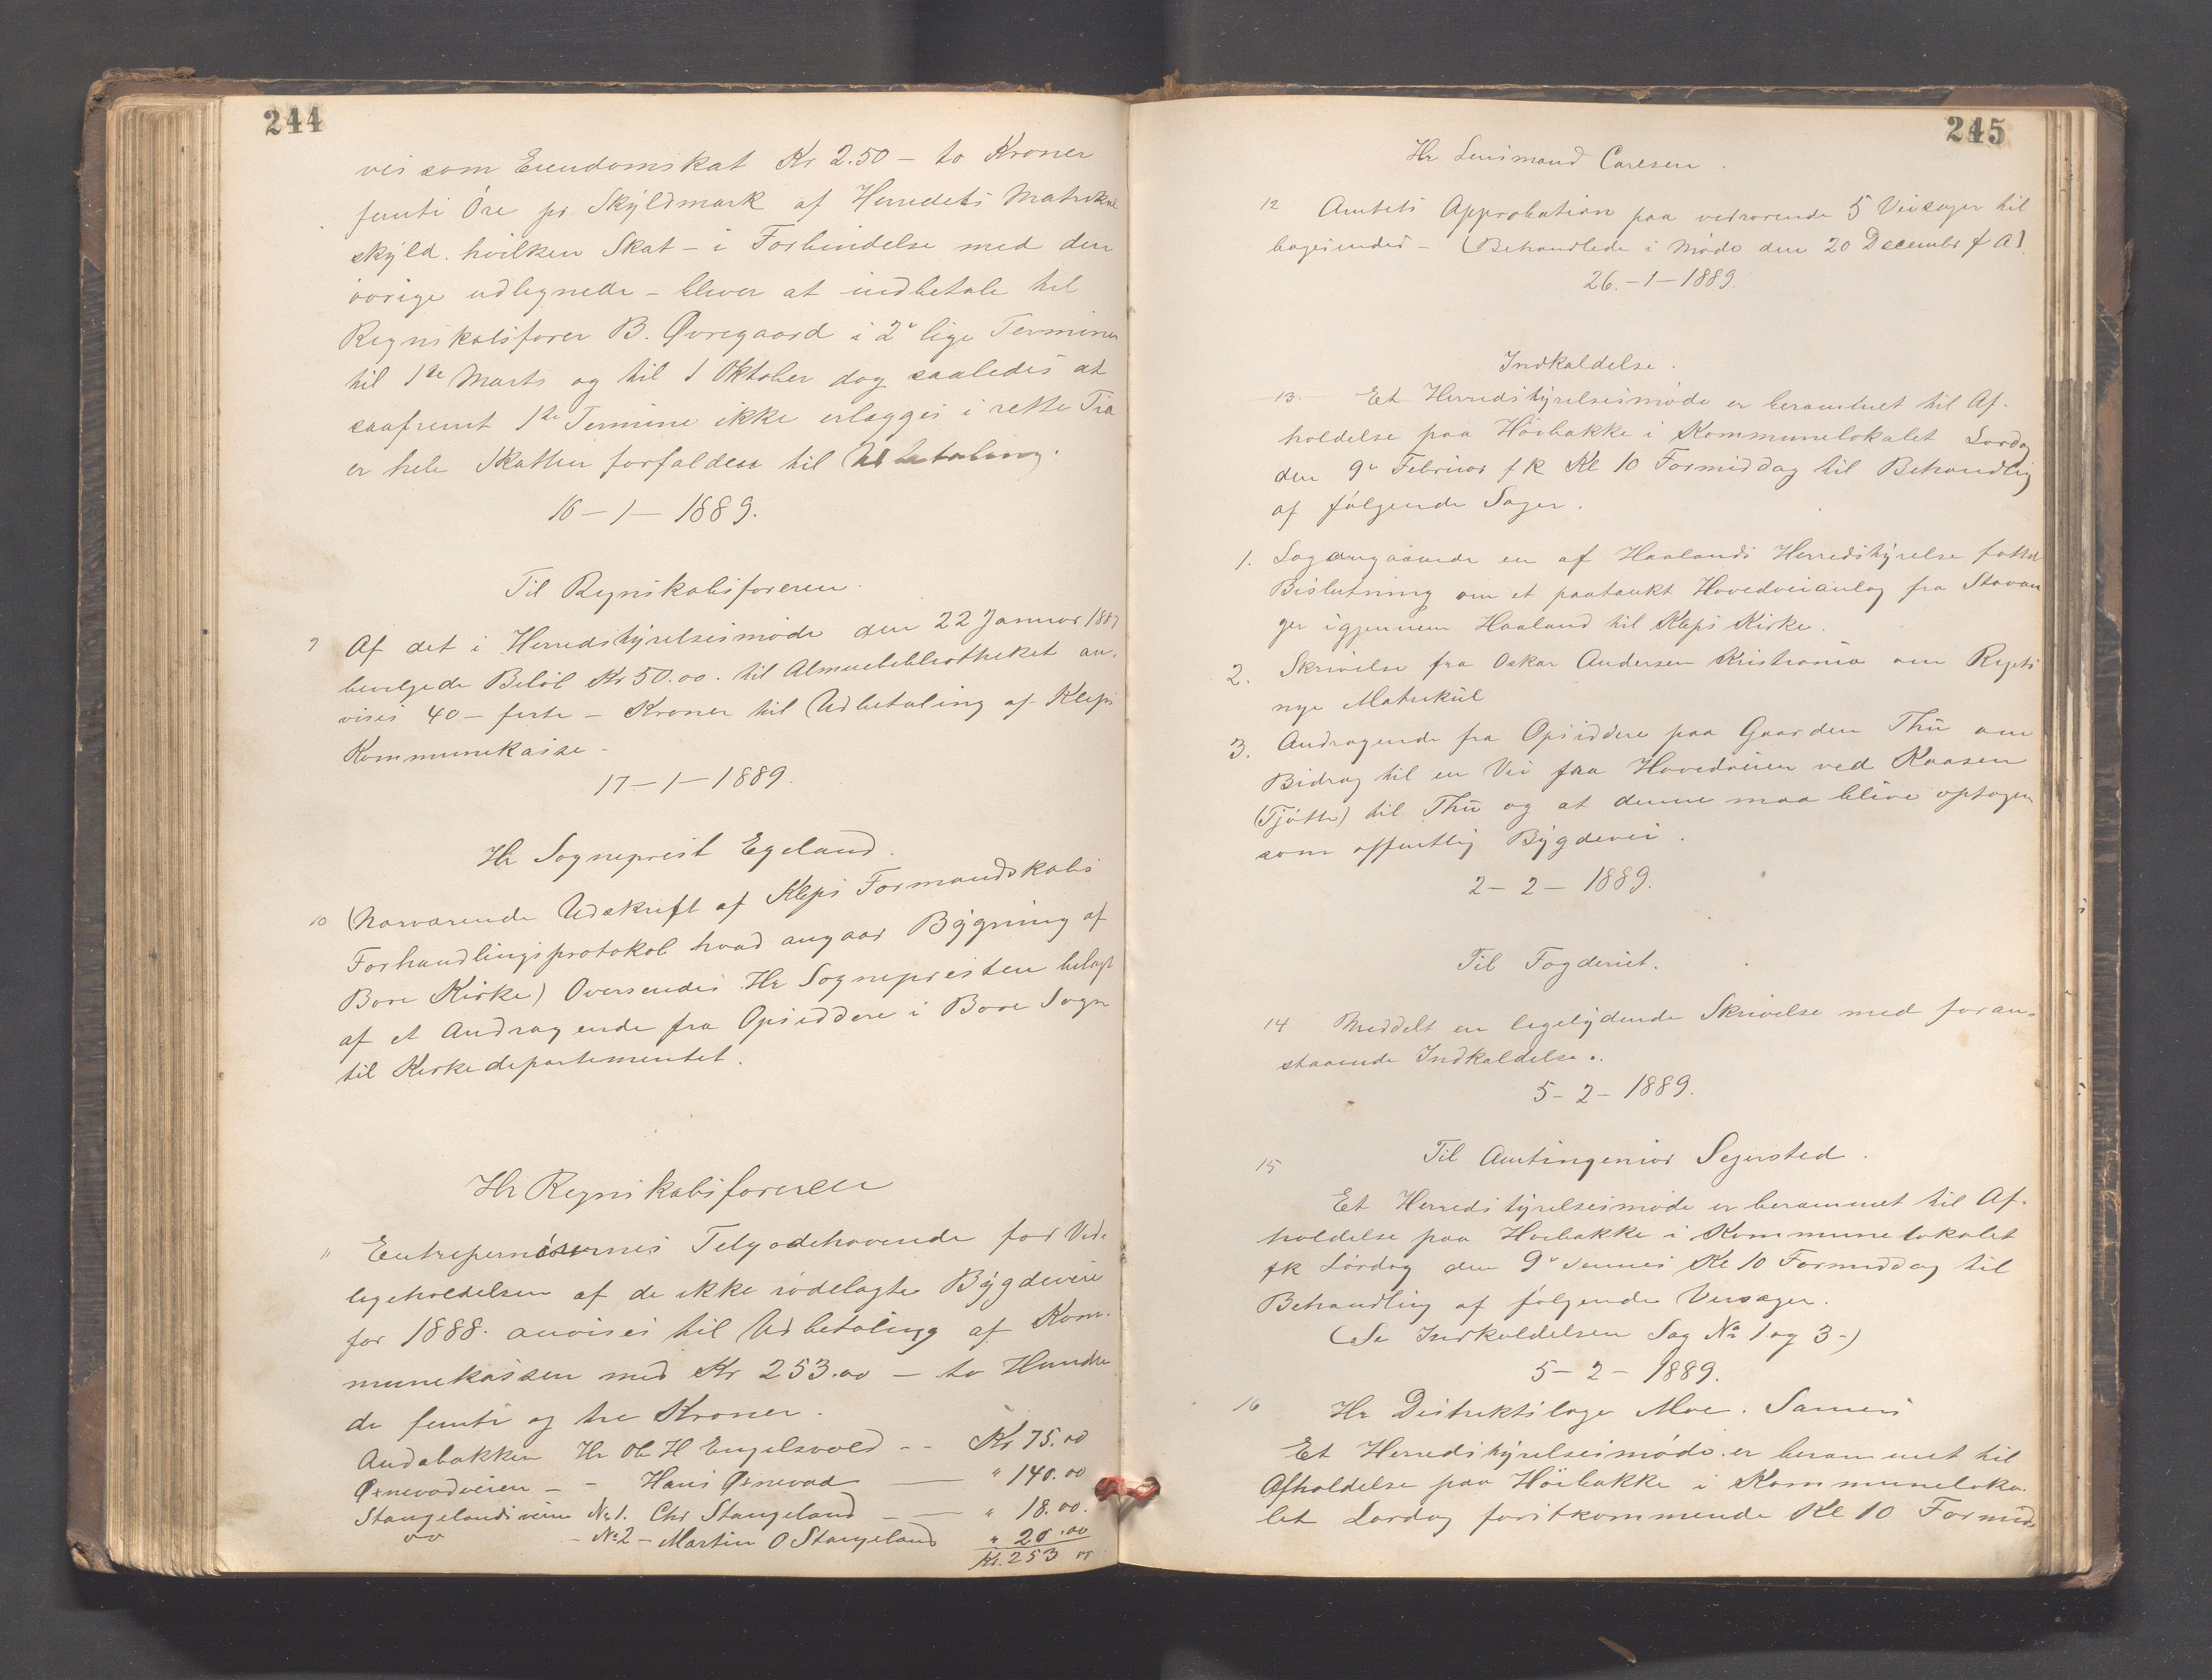 244
vis som Eiendomskat Kr 2.50 – to Kroner
femti Öre pr. Skÿldmark af Herredets Matrikul
skÿld. hvilken Skat – i Forbindelse med den
övrige udlignede – bliver at indbetale til
Regnskabsfører B. Øvregaard i 2de lige Terminer
til 1ste Marts og til 1 Oktober dog saaledes at
saafremt 1ste Termine ikke erlægges i rette Tid
er hele Skatten forfalden til Udbetaling.
16 – 1 – 1889.
Til Regnskabsføreren.
9 Af det i Herredstÿrelsesmøde den 22 Januar 1887
bevilgede Beløb Kr 50.00. til Almuebibliotheket an-
vises 40 – førti – Kroner til Udbetaling af Kleps
Kommunekasse –
17 – 1 – 1889.
Hr Sogneprest Egeland.
10 (Nærværende Udskrift af Kleps Formandskabs
Forhandlingsprotokol hvad angaar Bÿgning af
Bore Kirke) Oversendes Hr Sognepresten bilagt
af et Andragende fra Opsiddere i Bore Sogn
til Kirkedepartementet.
Hr Regnskabsføreren
11 Entreprenörernes Tilgodehavende for Ved-
ligeholdelsen af de ikke rodelagte Bÿgdeveie
for 1888. anvises til Udbetaling af Kom-
munekassen med Kr 253.00 – to Hundre
de femti og tre Kroner.
Andabakken Hr Ole H Engelsvold – – Kr 75.00
Øxnevadveien – – Hans Øxnevad — " 140.00
Stangelandsveien No 1. Chr Stangeland – — " 18.00.
do – No 2 – Martin O Stangeland " 20.00
Kr. 253 00
245
Hr Lensmand Carlsen.
12 Amtets Approbation paa vedrørende 5 Veisager til
bagesendes – (Behandlede i Möde den 20 December f A).
26. – 1 – 1889.
Indkaldelse.
13. Et Herredstÿrelsesmöde er berammet til Af-
holdelse paa Höibakke i Kommunelokalet Lørdag
den 9de Februar f k Kl 10 Formiddag til Behandling
af følgende Sager.
1. Sag angaaende en af Haalands Herredstÿrelse fattet
Beslutning om et paatænkt Hovedveianlæg fra Stavan
ger igjennem Haaland til Kleps Kirke.
2. Skrivelse fra Oskar Andersen Kristiania om Rigets
nye Matrikül
3. Andragende fra Opsiddere paa Gaarden Thü om
Bidrag til en Vei fra Hovedveien ved Kaasen
(Tjötta) til Thü og at denne maa blive optagen
som offentlig Bÿgdevei.
2 – 2 – 1889.
Til Fogderiet.
14 Meddelt en ligelÿdende Skrivelse med foran-
staaende Indkaldelse.
5 – 2 – 1889.
15 Til Amtingeniør Segersted.
Et Herredstÿrelsesmöde er berammet til Af-
holdelse paa Høibakke i Kommunelokalet
fk Lördag den 9de dennes Kl 10 Formiddag til
Behandling af følgende Veisager.
(Se Indkaldelsen Sag No 1 og 3 –)
5 – 2 – 1889.
16 Hr Distriktslæge Moe. Sannes
Et Herredstÿrelsesmöde er berammet til
Afholdelse paa Höibakke i Kommuneloka-
let Lørdag førstkommende Kl 10 Formid